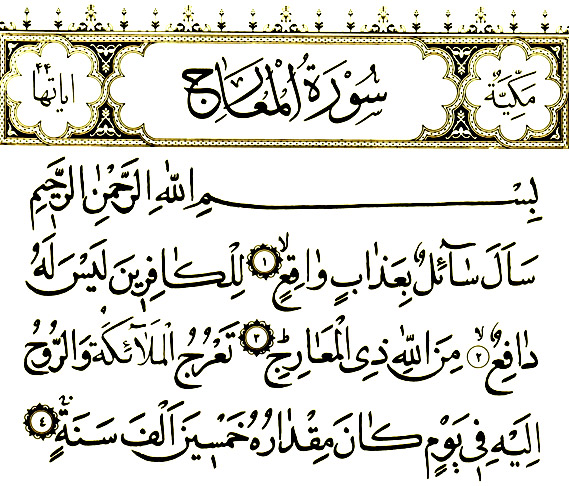 مَكِّيَّةٌ سُورَةُ الْمَعَارِجِ اٰيَاتُهَا ٤٤
بِسْمِ اللّٰهِ الرَّحْمٰنِ الرَّحٖيمِ
سَاَلَ سَٓائِلٌ بِعَذَابٍ وَاقِعٍۙ ﴿١﴾ لِلْكَافِرٖينَ لَيْسَ لَهُ
دَافِعٌۙ ﴿٢﴾ مِنَ اللّٰهِ ذِي الْمَعَارِجِۜ ﴿٣﴾ تَعْرُجُ الْمَلٰٓائِكَةُ وَالرُّوحُ
اِلَيْهِ فٖي يَوْمٍ كَانَ مِقْدَارُهُ خَمْسٖينَ اَلْفَ سَنَةٍۚ ﴿٤﴾